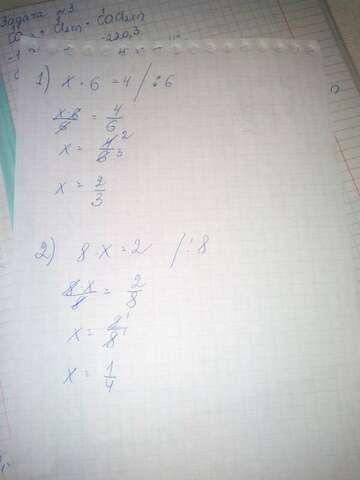 Задача №3
-220,3
1) x · 6 = 4 / : 6
x·6/6 = 4/6
x = 4/6 2 3
x = 2/3
2) 8 · x = 2 / : 8
8·x/8 = 2/8
x = 2/8 1
x = 1/4